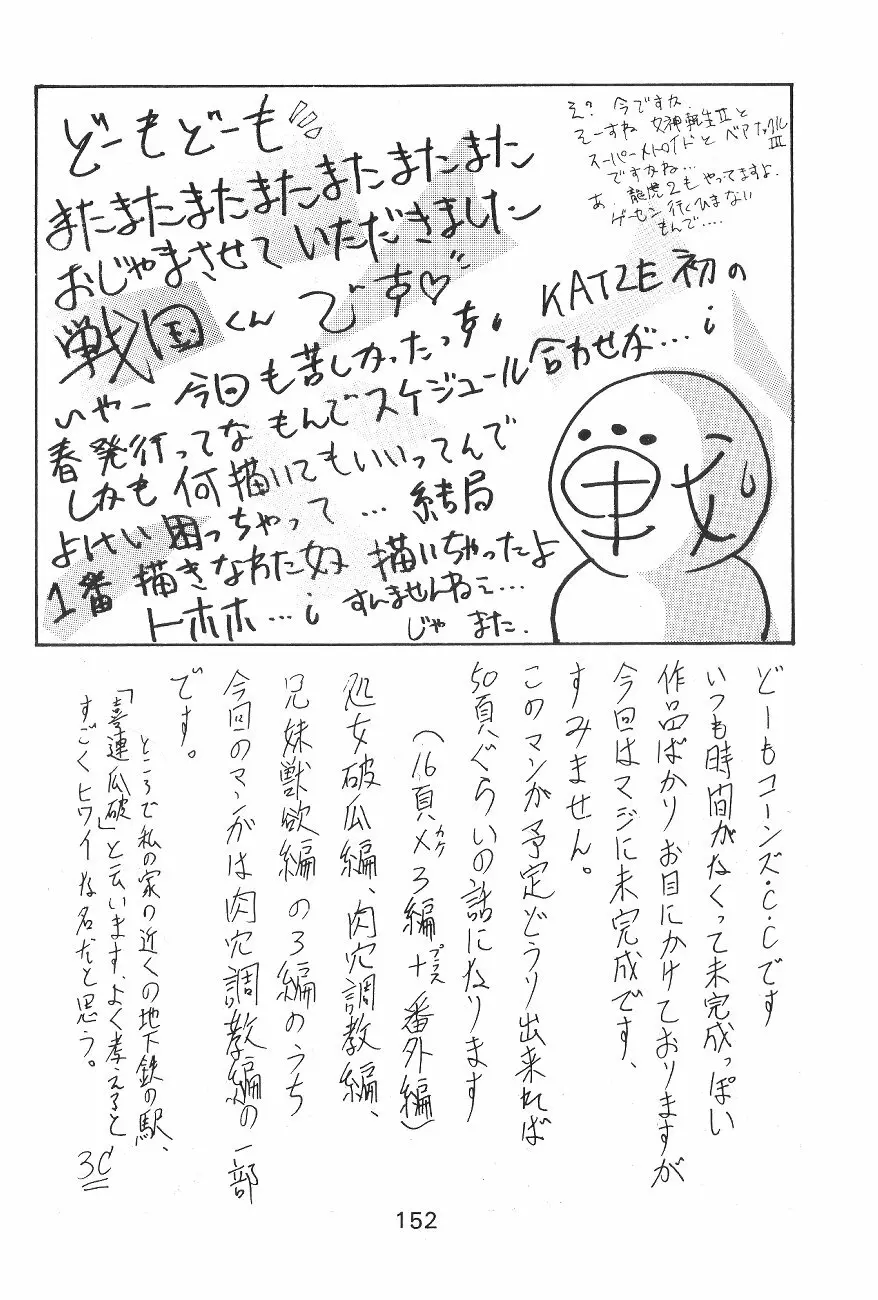 どーもどーも
またまたまたまたまたまたまた
おじゃまさせていただきました
戦国くんです♡
いやー 今回も苦しかったっす。KATZE初の
春発行ってなもんでスケジュール合わせが…
しかも何描いてもいいってんで
よけい困っちゃって…結局
1番描きなれた奴描いちゃったよ
トホホ… すんませんねェ…
じゃ また.
え? 今ですか.
そーすね 女神転生Ⅱと
スーパーメトロイドとベアナックルⅢ
ですかね…
あ. 龍虎2もやってますよ.
ゲーセン行くひまない
もんで‥‥
どーもコーンズ・C・Cです
いつも時間がなくって未完成っぽい
作品ばかりお目にかけておりますが
今回はマジに未完成です、
すみません。
このマンガ予定どうり出来れば
50頁ぐらいの話になります
(16頁×カケ3編+プラス番外編)
処女破瓜編、肉穴調教編、
兄妹獣欲編の3編のうち
今回のマンガは肉穴調教編の一部
です。
ところで私の家の近くの地下鉄の駅、
「喜連瓜破」と云います、よく孝えると
すごくヒワイな名だと思う。
3C
152